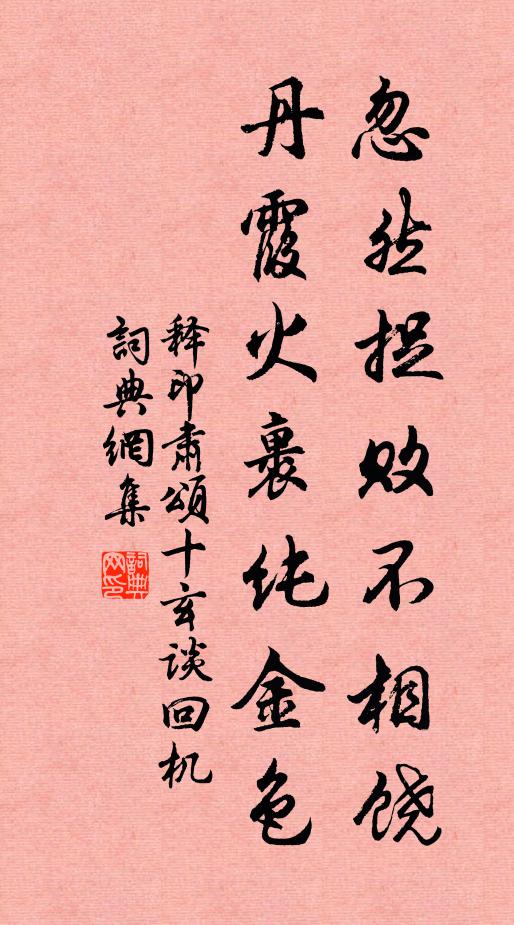 忽然捉败不相饶
丹霞火裹纯金色
释印肃頌十玄谈回机
詞典網集
詞典網印